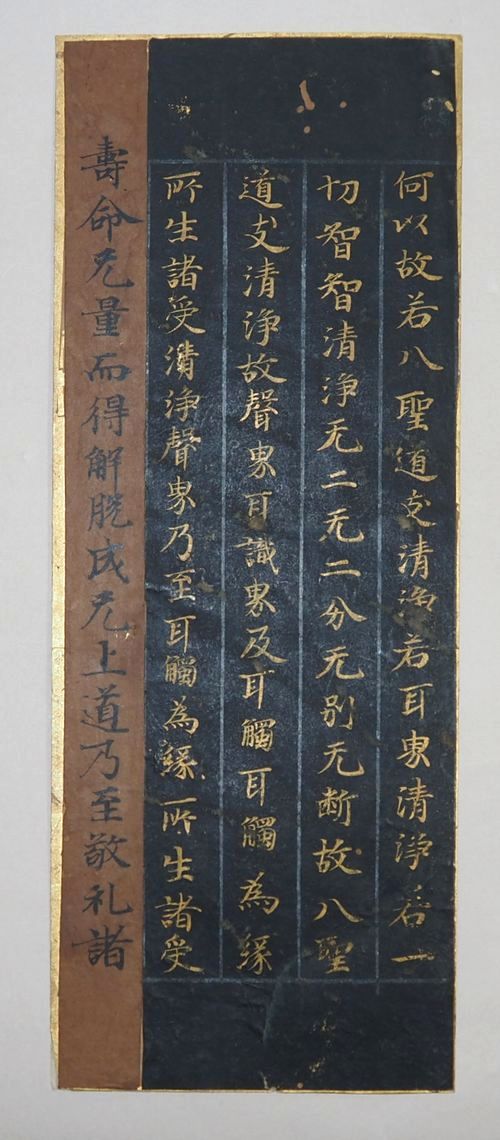 何以故若八聖道支清淨若耳界清淨若一
切智智清淨无二无二分无别无断故八聖
道支清淨故聲界耳識界及耳觸耳觸為緣
所生諸受清淨聲界乃至耳觸為緣所生諸受
壽命无量而得解脫成无上道乃至敬礼諸